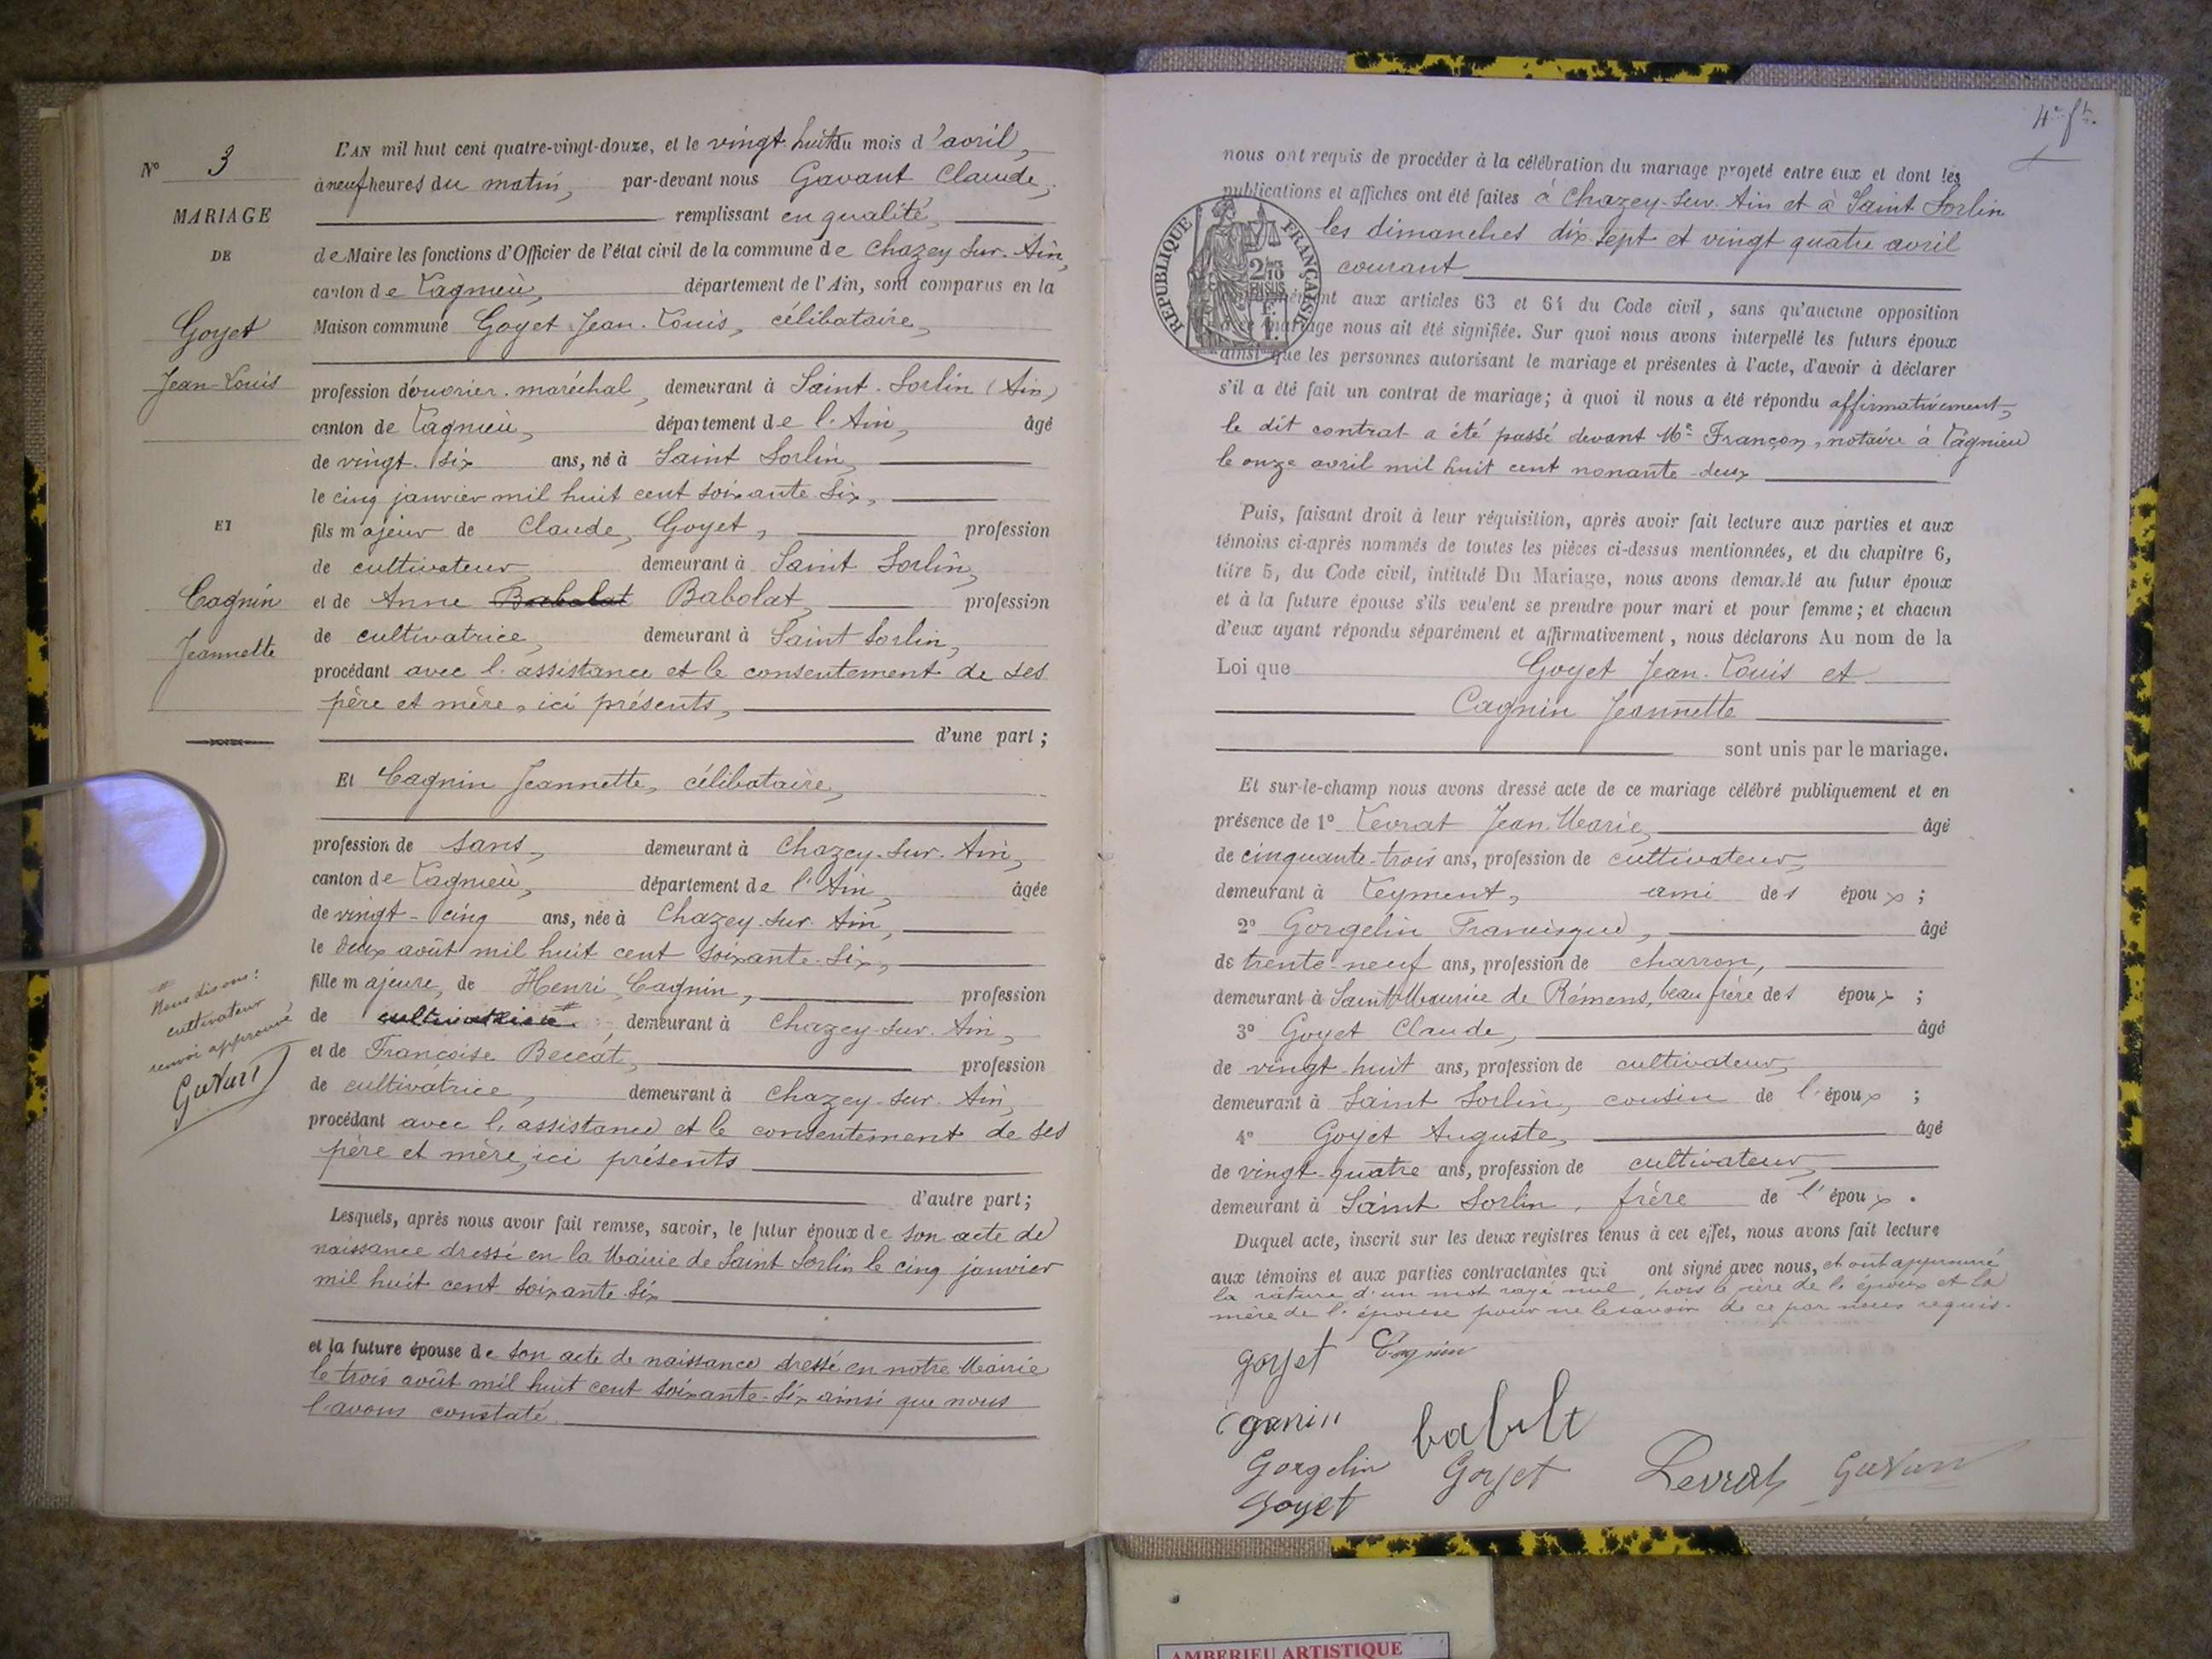 N° 3
MARIAGE
DE
Goyet
Jean-Louis
ET
Cagnin
Jeannette
L'AN mil huit cent quatre-vingt-douze, et le vingt-huit du mois d'avril,
à neuf heures du matin, par-devant nous Gavant Claude,
remplissant en qualité
de Maire les fonctions d'Officier de l'état civil de la commune de Chazey-sur-Ain,
canton de Lagnieu, département de l'Ain, sont comparus en la
Maison commune Goyet Jean-Louis, célibataire,
profession d'ouvrier-maréchal, demeurant à Saint-Sorlin (Ain)
canton de Lagnieu, département de l'Ain, âgé
de vingt-six ans, né à Saint Sorlin,
le cinq janvier mil huit cent soixante-six,
fils majeur de Claude, Goyet, profession
de cultivateur, demeurant à Saint Sorlin,
et de Anne Babolat Babolat, profession
de cultivatrice, demeurant à Saint Sorlin,
procédant avec l'assistance et le consentement de ses
père et mère, ici présents,
d'une part ;
Et Cagnin Jeannette, célibataire,
profession de sans, demeurant à Chazey-sur-Ain,
canton de Lagnieu, département de l'Ain, âgée
de vingt-cinq ans, née à Chazey-sur-Ain,
le deux août mil huit cent soixante-six,
fille majeure, de Henri, Cagnin, profession
de cultivatrice # demeurant à Chazey-sur-Ain,
# Nous disons :
cultivateur
renvoi approuvé
Gavant
et de Françoise Beccat, profession
de cultivatrice, demeurant à Chazey-sur-Ain,
procédant avec l'assistance et le consentement de ses
père et mère, ici présents
d'autre part ;
Lesquels, après nous avoir fait remise, savoir, le futur époux de son acte de
naissance dressé en la Mairie de Saint Sorlin le cinq janvier
mil huit cent soixante-six
et la future épouse de son acte de naissance dressé en notre Mairie
le trois août mil huit cent soixante-six ainsi que nous
l'avons constaté.
nous ont requis de procéder à la célébration du mariage projeté entre eux et dont les
publications et affiches ont été faites à Chazey-sur-Ain et à Saint Sorlin
les dimanches dix-sept et vingt quatre avril
courant
RÉPUBLIQUE FRANÇAISE
2/10 EN SUS
1 F.
aux articles 63 et 64 du Code civil, sans qu'aucune opposition
à ce mariage nous ait été signifiée. Sur quoi nous avons interpellé les futurs époux
ainsi que les personnes autorisant le mariage et présentes à l'acte, d'avoir à déclarer
s'il a été fait un contrat de mariage ; à quoi il nous a été répondu affirmativement,
le dit contrat a été passé devant Me Françon, notaire à Lagnieu
le onze avril mil huit cent nonante-deux
Puis, faisant droit à leur réquisition, après avoir fait lecture aux parties et aux
témoins ci-après nommés de toutes les pièces ci-dessus mentionnées, et du chapitre 6,
titre 5, du Code civil, intitulé Du Mariage, nous avons demandé au futur époux
et à la future épouse s'ils veulent se prendre pour mari et pour femme ; et chacun
d'eux ayant répondu séparément et affirmativement, nous déclarons Au nom de la
Loi que Goyet Jean-Louis et
Cagnin Jeannette
sont unis par le mariage.
Et sur-le-champ nous avons dressé acte de ce mariage célébré publiquement et en
présence de 1° Levrat Jean Marie, âgé
de cinquante-trois ans, profession de cultivateur,
demeurant à Leyment, ami des époux ;
2° Gorgelin Francisque, âgé
de trente-neuf ans, profession de charron,
demeurant à Saint-Maurice de Rémens, beau frère des époux ;
3° Goyet Claude, âgé
de vingt-huit ans, profession de cultivateur,
demeurant à Saint Sorlin, cousin de l'époux ;
4° Goyet Auguste, âgé
de vingt-quatre ans, profession de cultivateur,
demeurant à Saint Sorlin, frère de l'époux.
Duquel acte, inscrit sur les deux registres tenus à cet effet, nous avons fait lecture
aux témoins et aux parties contractantes qui ont signé avec nous, et ont approuvé
la rature d'un mot rayé nul, hors le père de l'époux et la
mère de l'épouse pour ne le savoir de ce par nous requis.
goyet Cagnin
babolt
Gorgelin Goyet Levrat Gavant
Goyet
AMBERIEU ARTISTIQUE